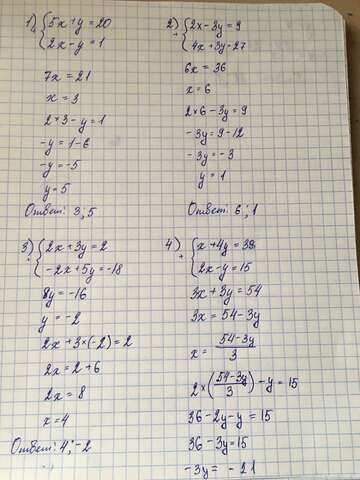 1) 5x+y=20
+ 2x-y=1
7x=21
x=3
2×3-y=1
-y=1-6
-y=-5
y=5
Ответ: 3; 5
2) 2x-3y=9
+ 4x+3y=27
6x=36
x=6
2×6-3y=9
-3y=9-12
-3y=-3
y=1
Ответ: 6; 1
3) 2x+3y=2
+ -2x+5y=-18
8y=-16
y=-2
2x+3×(-2)=2
2x=2+6
2x=8
x=4
Ответ: 4; -2
4) x+4y=39
+ 2x-y=15
3x+3y=54
3x=54-3y
x=54-3y/3
2×(54-3y/3)-y=15
36-2y-y=15
36-3y=15
-3y=-21